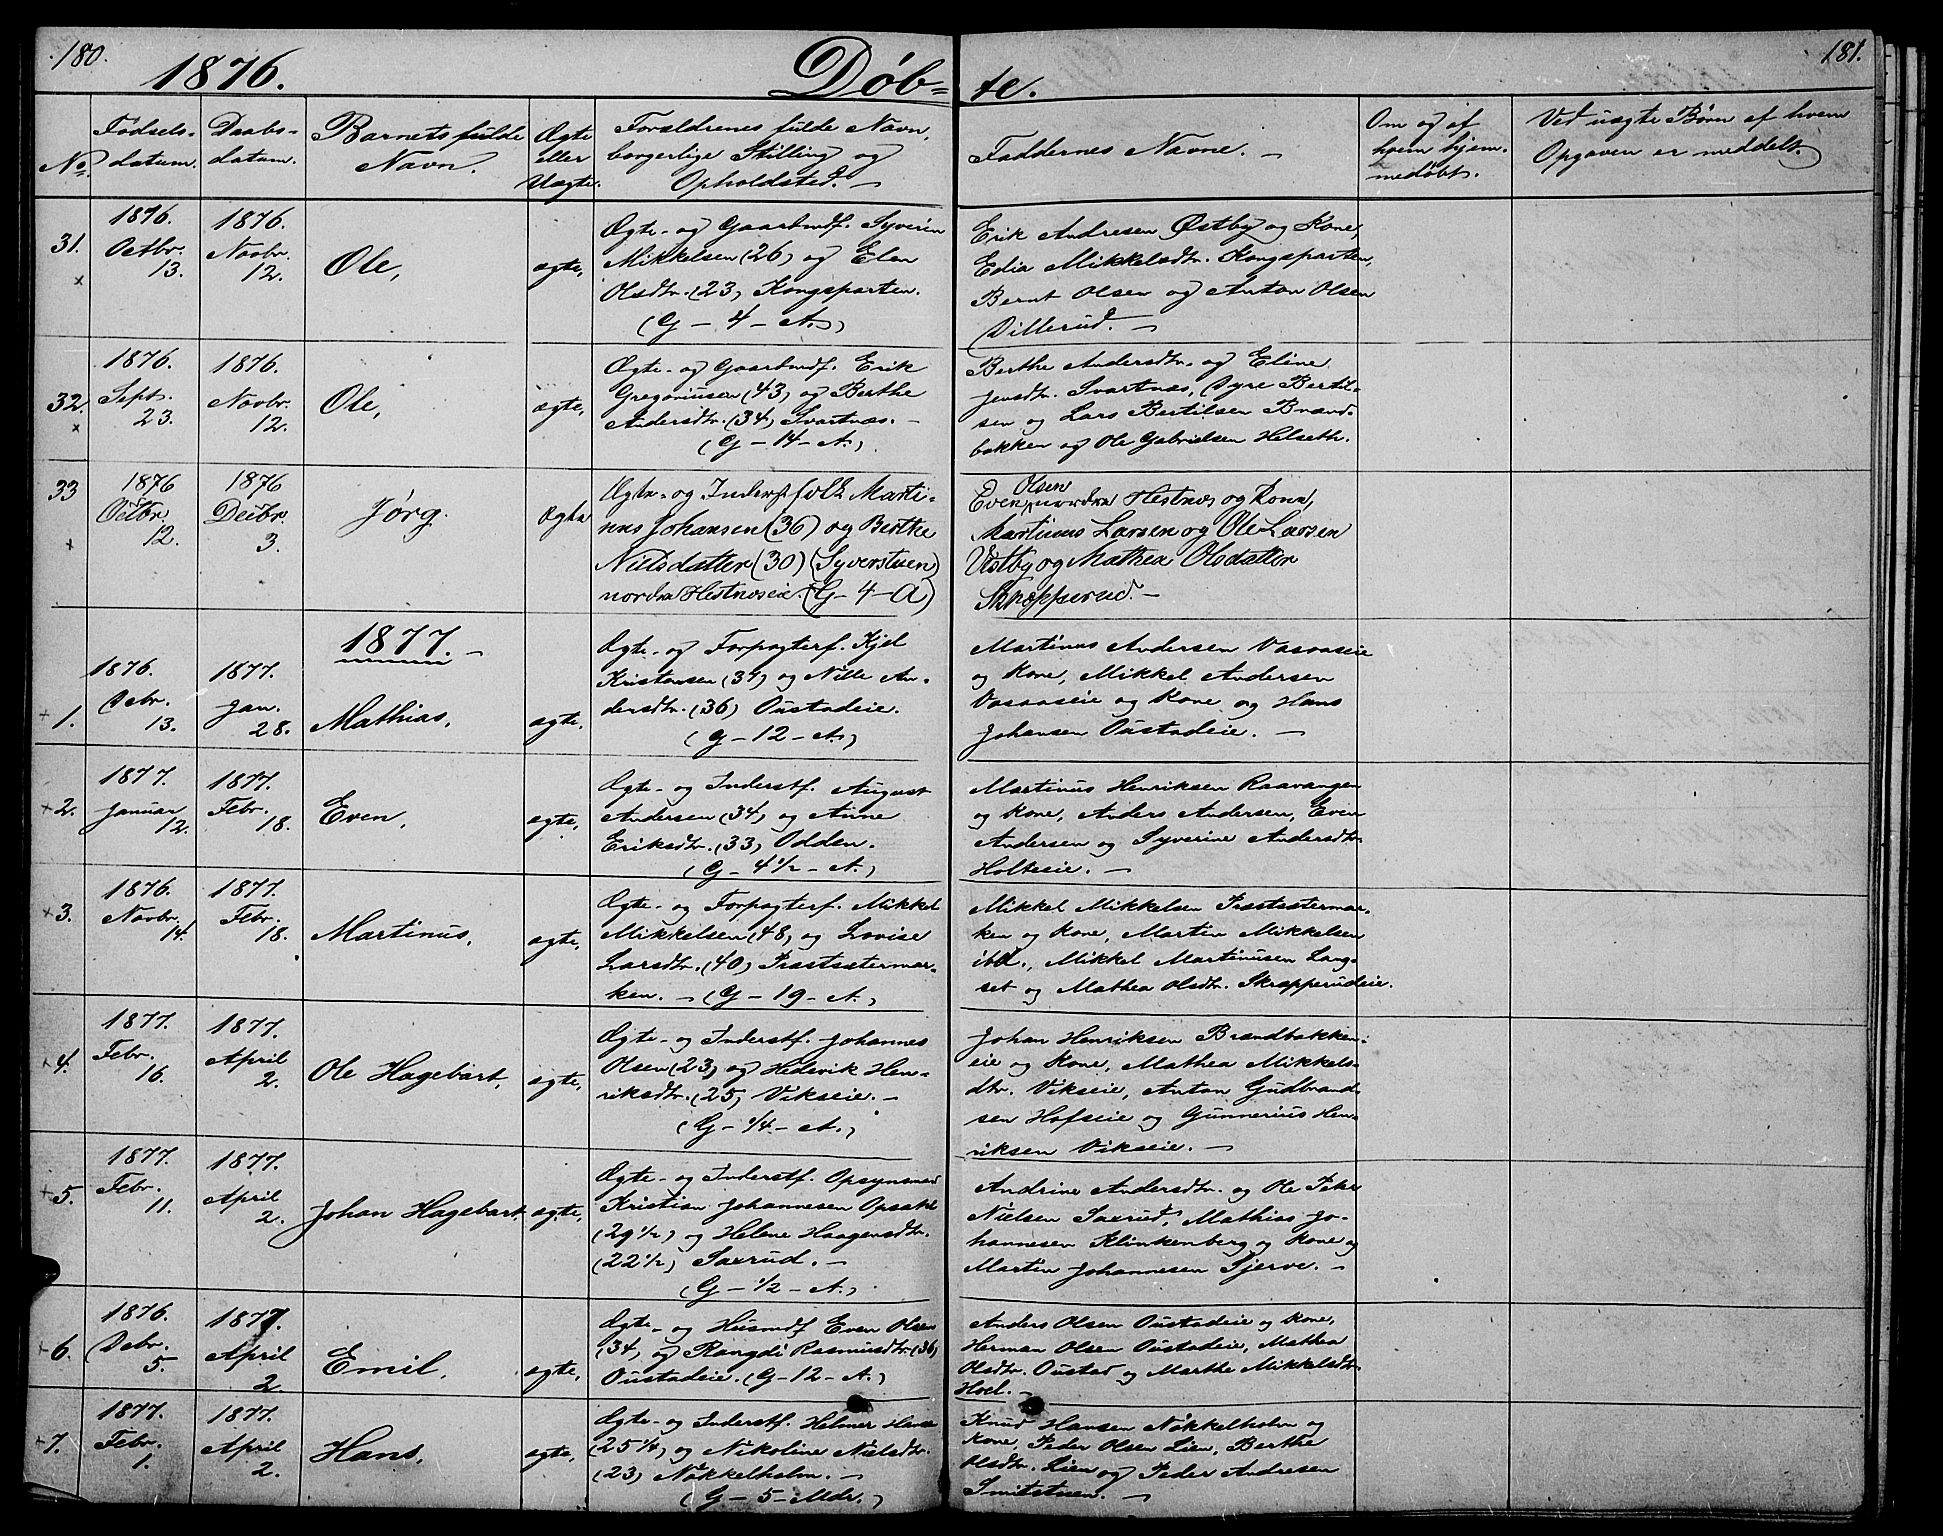 180.
1876.
Døb-
te.
181.
No.
Fødsels-
datum.
Daabs-
datum.
Barnets fulde
Navn.
Ægte
eller
Uægte.
Forældrenes fulde Navn,
borgerlige Stilling og
Opholdsted. —
Faddernes Navne. —
Om og af
hvem hjem-
medøbt.
Ved uægte Børn af hvem
Opgaven er meddelt.
31.
1876.
Octbr.
13.
1876.
Novbr.
12.
Ole,
ægte,
Ægte- og Gaardmdf. Syverin
Mikkelsen (26) og Elen
Olsdtr. (23) Kongsparten.
(G - 4 - A.)
Erik Andresen Østby og Kone,
Edia Mikkelsdtr. Kongsparten,
Bernt Olsen og Anton Olsen
Dillerud. —
32.
1876.
Sept.
23.
1876.
Novbr.
12.
Ole,
ægte,
Ægte- og Gaardmdf. Erik
Gregoriusen (43) og Berthe
Andersdtr. (34) Svartnæs. —
(G - 14 - A.)
Berthe Andersdtr. og Eline
Jensdtr. Svartnæs, Dyre Bertil-
sen og Lars Bertilsen Brænd-
bakken og Ole Gabrielsen Helseth.
33
1876
Octbr.
12.
1876
Decbr.
3.
Jørg.
Ægte
Ægte- og Inderstfolk Marti-
nus Johansen (36) og Berthe
Nielsdatter (30) (Syverstuen)
nordre Hestnæseie. (G - 4 - A)
Olsen
Even nordre Hestnæs og Kone,
Martinus Larsen og Ole Larsen
Vestby og Mathea Olsdatter
Skræpperud. —
1877. —
1.
1876.
Debr.
13.
1877.
Jan.
28.
Mathias,
ægte,
Ægte- og Forpagterf. Kjel
Kristansen (37) og Nille An-
dersdtr. (36) Oustadeie.
(G - 12 - A.)
Martinus Andersen Vasaaseie
og Kone, Mikkel Andersen
Vasaaseie og Kone og Hans
Johansen Oustadeie. —
2.
1877.
Januar
12.
1877.
Febr.
18.
Even,
ægte,
Ægte- og Inderstf. August
Andersen (34) og Anne
Eriksdtr. (33) Odden.
(G - 4 1/2 - A.)
Martinus Henriksen Raavangen
og Kone, Anders Andersen, Even
Andersen og Syverine Andersdtr.
Holteeie. —
3.
1876.
Novbr.
14.
1877.
Febr.
18.
Martinus,
ægte,
Ægte- og Forpagterf. Mikkel
Mikkelsen (48) og Lovise
Larsdtr. (40) Præstsætermar-
ken. — (G - 19 - A.)
Mikkel Mikkelsen Præstsætermar-
ken og Kone, Martin Mikkelsen
ibd., Mikkel Martinusen Lang-
set og Mathea Olsdtr. Skræpperudeie.
4.
1877.
Febr.
16.
1877.
April
2.
Ole Hagebart,
ægte,
Ægte- og Inderstf. Johannes
Olsen (23) og Hedevik Hen-
riksdtr. (25) Vikseie. —
(G - 1/4 - A.)
Johan Henriksen Brændbakken-
eie og Kone, Mathea Mikkels-
dtr. Vikseie, Anton Gudbrand-
sen Hofseie og Gunnerius Hen-
riksen Vikseie. —
5.
1877.
Febr.
11.
1877.
April
2.
Johan Hagebart,
ægte,
Ægte- og Inderstf. Opsynsmd
Kristian Johannesen Opsahl
(29 1/2) og Helene Haagensdtr.
(22 1/2) Saxrud. —
(G - 1/2 - A.)
Andrine Andersdtr. og Ole Peter
Nielsen Saxrud, Mathias Jo-
hannesen Klinkenberg og Kone og
Martin Johannesen Sjerve. —
6.
1876.
Debr.
5.
1877.
April
2.
Emil,
ægte,
Ægte- og Husmdf Even Olsen
(34) og Rangdi Rasmusdtr. (36)
Oustadeie. (G - 12 - A.)
Anders Olsen Oustadeie og Kone,
Herman Olsen Oustadeie, Mathea
Olsdtr. Oustad og Marthe Mikkelsdtr.
Hoel. —
7.
1877.
Febr.
1.
1877.
April
2.
Hans,
ægte,
Ægte- og Inderstf. Helmer Hansen
(25 1/4) og Nikoline Nielsdtr.
(23) Nøkkelholm. —
(G - 5 - Mdr.)
Knud Hansen Nøkkelholm og
Kone, Peder Olsen Lien, Berthe
Olsdtr. Lien og Peder Andresen
Smitstuen. —